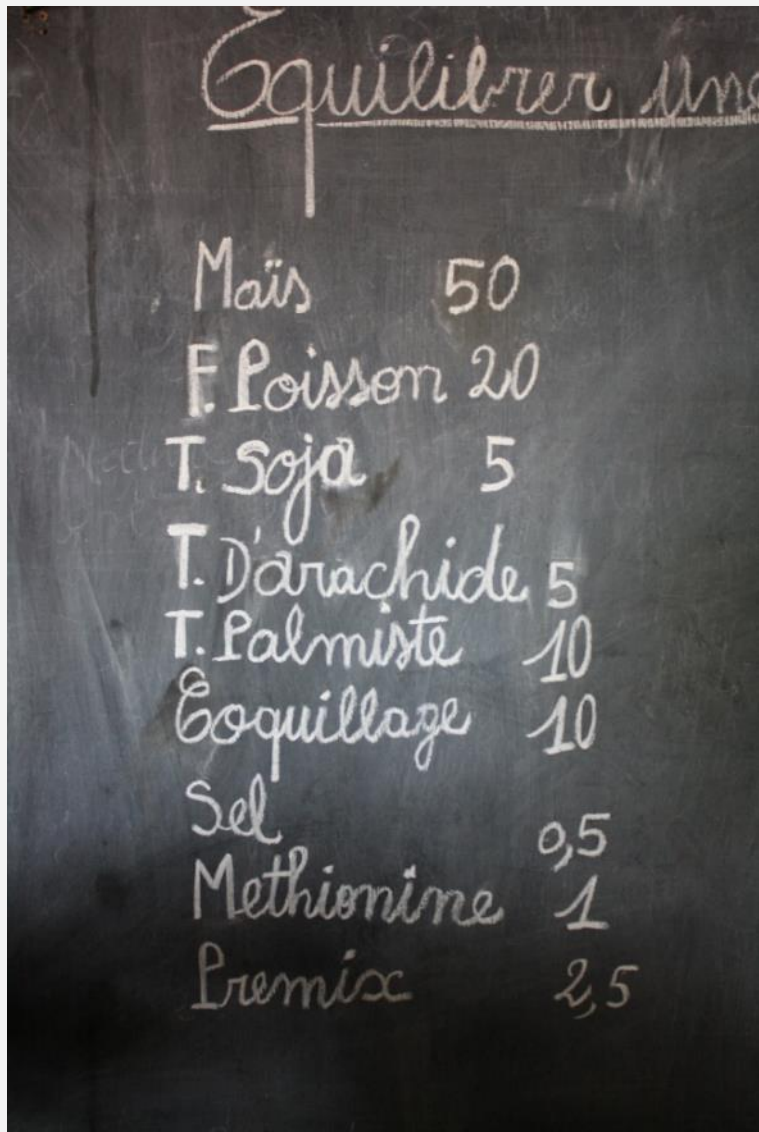 Equilibrer une
Maïs 50
F. Poisson 20
T. Soja 5
T. D'arachide 5
T. Palmiste 10
Coquillage 10
Sel 0,5
Methionine 1
Premix 2,5